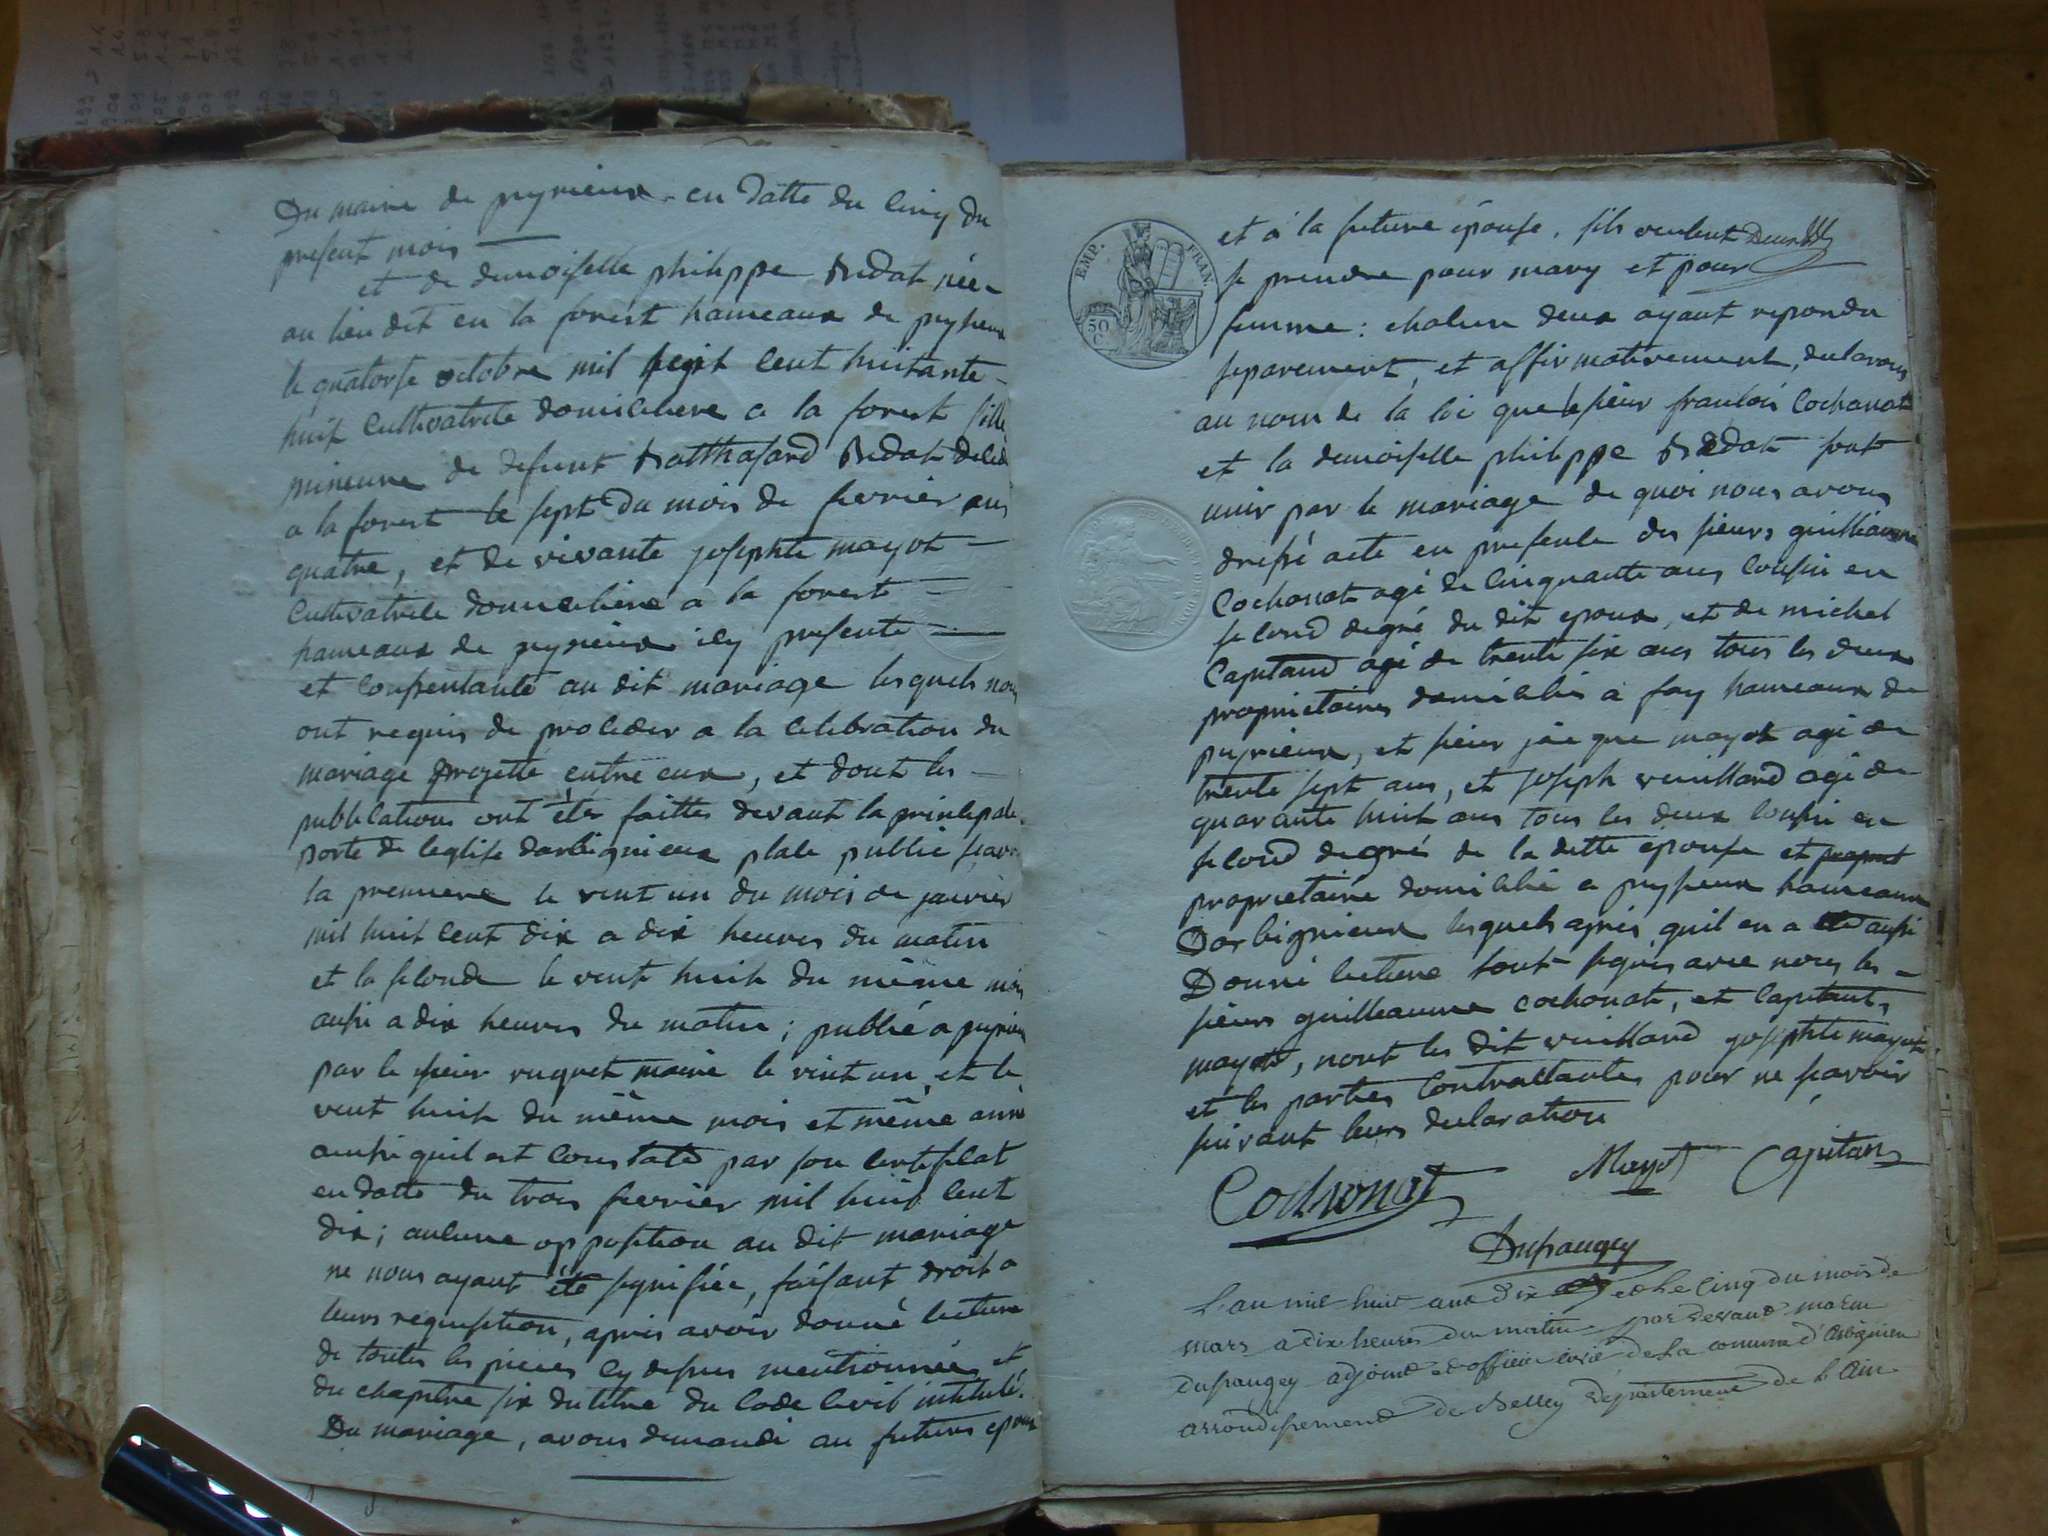 Du maire de pyrieux en datte du cinq du
present mois
et de demoiselle philippe Bidat née
au lieu dit en la forest hameaux de pugieux
le quatorse octobre mil sept cent huitante
huit cultivatrice domiciliere a la forest fille
mineure de defunt Balthasard Bidat décédé
a la forest le sept du mois de fevrier ans
quatre, et de vivante josephte mayot
cultivatrice domiciliere a la forest
hameaux de pyrieux icy presente
et consentante au dit mariage lesquels nous
ont requis de proceder a la celebration du
mariage projetté entre eux, et dont les
publications ont étés faittes devant la principale
porte de leglise darbignieux place public savoir
la premiere le vint un du mois de janvier
mil huit cent dix a dix heures du matin
et la seconde le vent huit du même mois
aussi a dix heures du matin; publié a pyrieu
par le sieur ruquet maire le vint un, et le
vent huit du même mois et même anné
ainsi quil est constaté par son certificat
en datte du trois fevrier mil huit cent
dix; aucune opposition au dit mariage
ne nous ayant été signifiée, faisant droit a
leurs requisition, apres avoir donné lecture
de toutes les pieces cy dessus mentionnées et
du chapitre six du titre du Code Civil intitulé
Du mariage, avons demandé au futurs epoux
EMP. FRAN.
50 C.
et a la future épouse, sils veulent
se prendre pour mary et pour
femme: chacun deux ayant repondu
separement, et affirmativement, declarons
au nom de la loi que le sieur francois Cochonat
et la demoiselle philippe Bidat sont
unir par le mariage de quoi nous avons
dressé acte en presence des sieurs guilleaume
Cochonat agé de cinquante ans cousin en
second degré du dit epoux, et de michel
Capitand agé de trente six ans tous les deux
proprietaires domiciliés a fay hameaux de
pyrieux, et sieur jacque mayot agé de
trente sept ans, et joseph vuillard agé de
quarante huit ans tous les deux cousin en
second degrés de la ditte epouse et
proprietaire domicilié a pugieux hameaux
Darbignieux lesquels apres quil en a été aussi
Donné lecture tont signés avec nous les
sieurs guilleaume cochonat, et Capitant,
mayot, nont les dit vuillard josephte mayot
et les parties Contractantes pour ne savoir
suivant leurs declaration
Cochonat Mayot Capitan
Dupraugey
L'an mil huit ans dix et le cinq du mois de
mars a dix heures du matin par devant
Dupraugey adjoint et officier civil de la comune d'arbignieu
arrondissement de Belley Departement de l'Ain